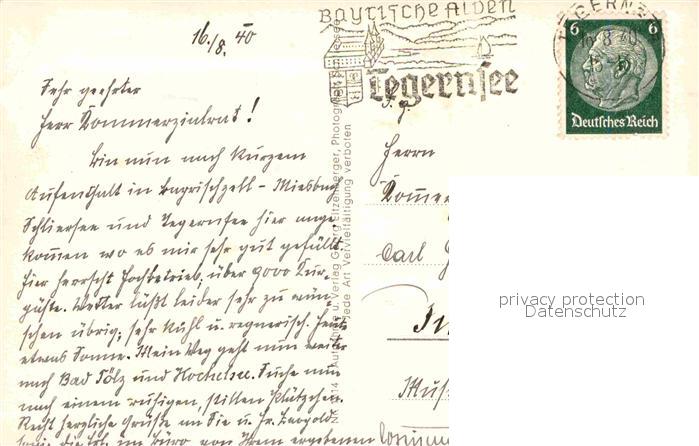 16./8. 40
Sehr geehrter
Herr Kommerzialrat!
Bin nun nach kurzem
Aufenthalt in Bayrischzell - Miesbach
Schliersee und Tegernsee hier ange
kommen wo es mir sehr gut gefällt.
Hier herrscht Hochbetrieb, über 9000 Kur-
gäste. Wetter läßt leider sehr zu wün-
schen übrig; sehr kühl u. regnerisch. Heute
etwas Sonne. Mein Weg geht nun weiter
nach Bad Tölz und Kochelsee. Suche nun
noch einem ruhigen, stillen Plätzchen.
Recht herzliche Grüße an Sie u. Hr. Leopold
im Büro von Ihrem ergebenen
Bayrische Alpen
Tegernsee
TEGERNSEE
16.8.40
6 6
Deutsches Reich
Aufnahme u. Verlag Georg Etzenberger, Photograph
Jede Art Vervielfältigung verboten
Herrn
Komm
Carl
privacy protection
Datenschutz